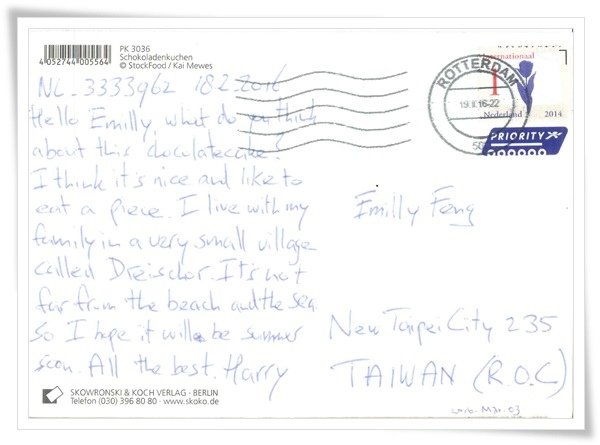 PK 3036
Schokoladenkuchen
© StockFood / Kai Mewes
4 052744 005564
NL-3333962 18-2-2016
Hello Emilly what do you think
about this chocolatecake?
I think it's nice and like to
eat a piece. I live with my
family in a very small village
called Dreischor. It's not
far from the beach and the sea
So I hope it will be summer
soon. All the best. Harry
SKOWRONSKI & KOCH VERLAG · BERLIN
Telefon (030) 396 80 80 · www.skoko.de
ROTTERDAM
19.II.16-22
Internationaal
1
Nederland 2014
PRIORITY
Emilly Feng
New Taipei City 235
TAIWAN (R.O.C)
Mar. 03